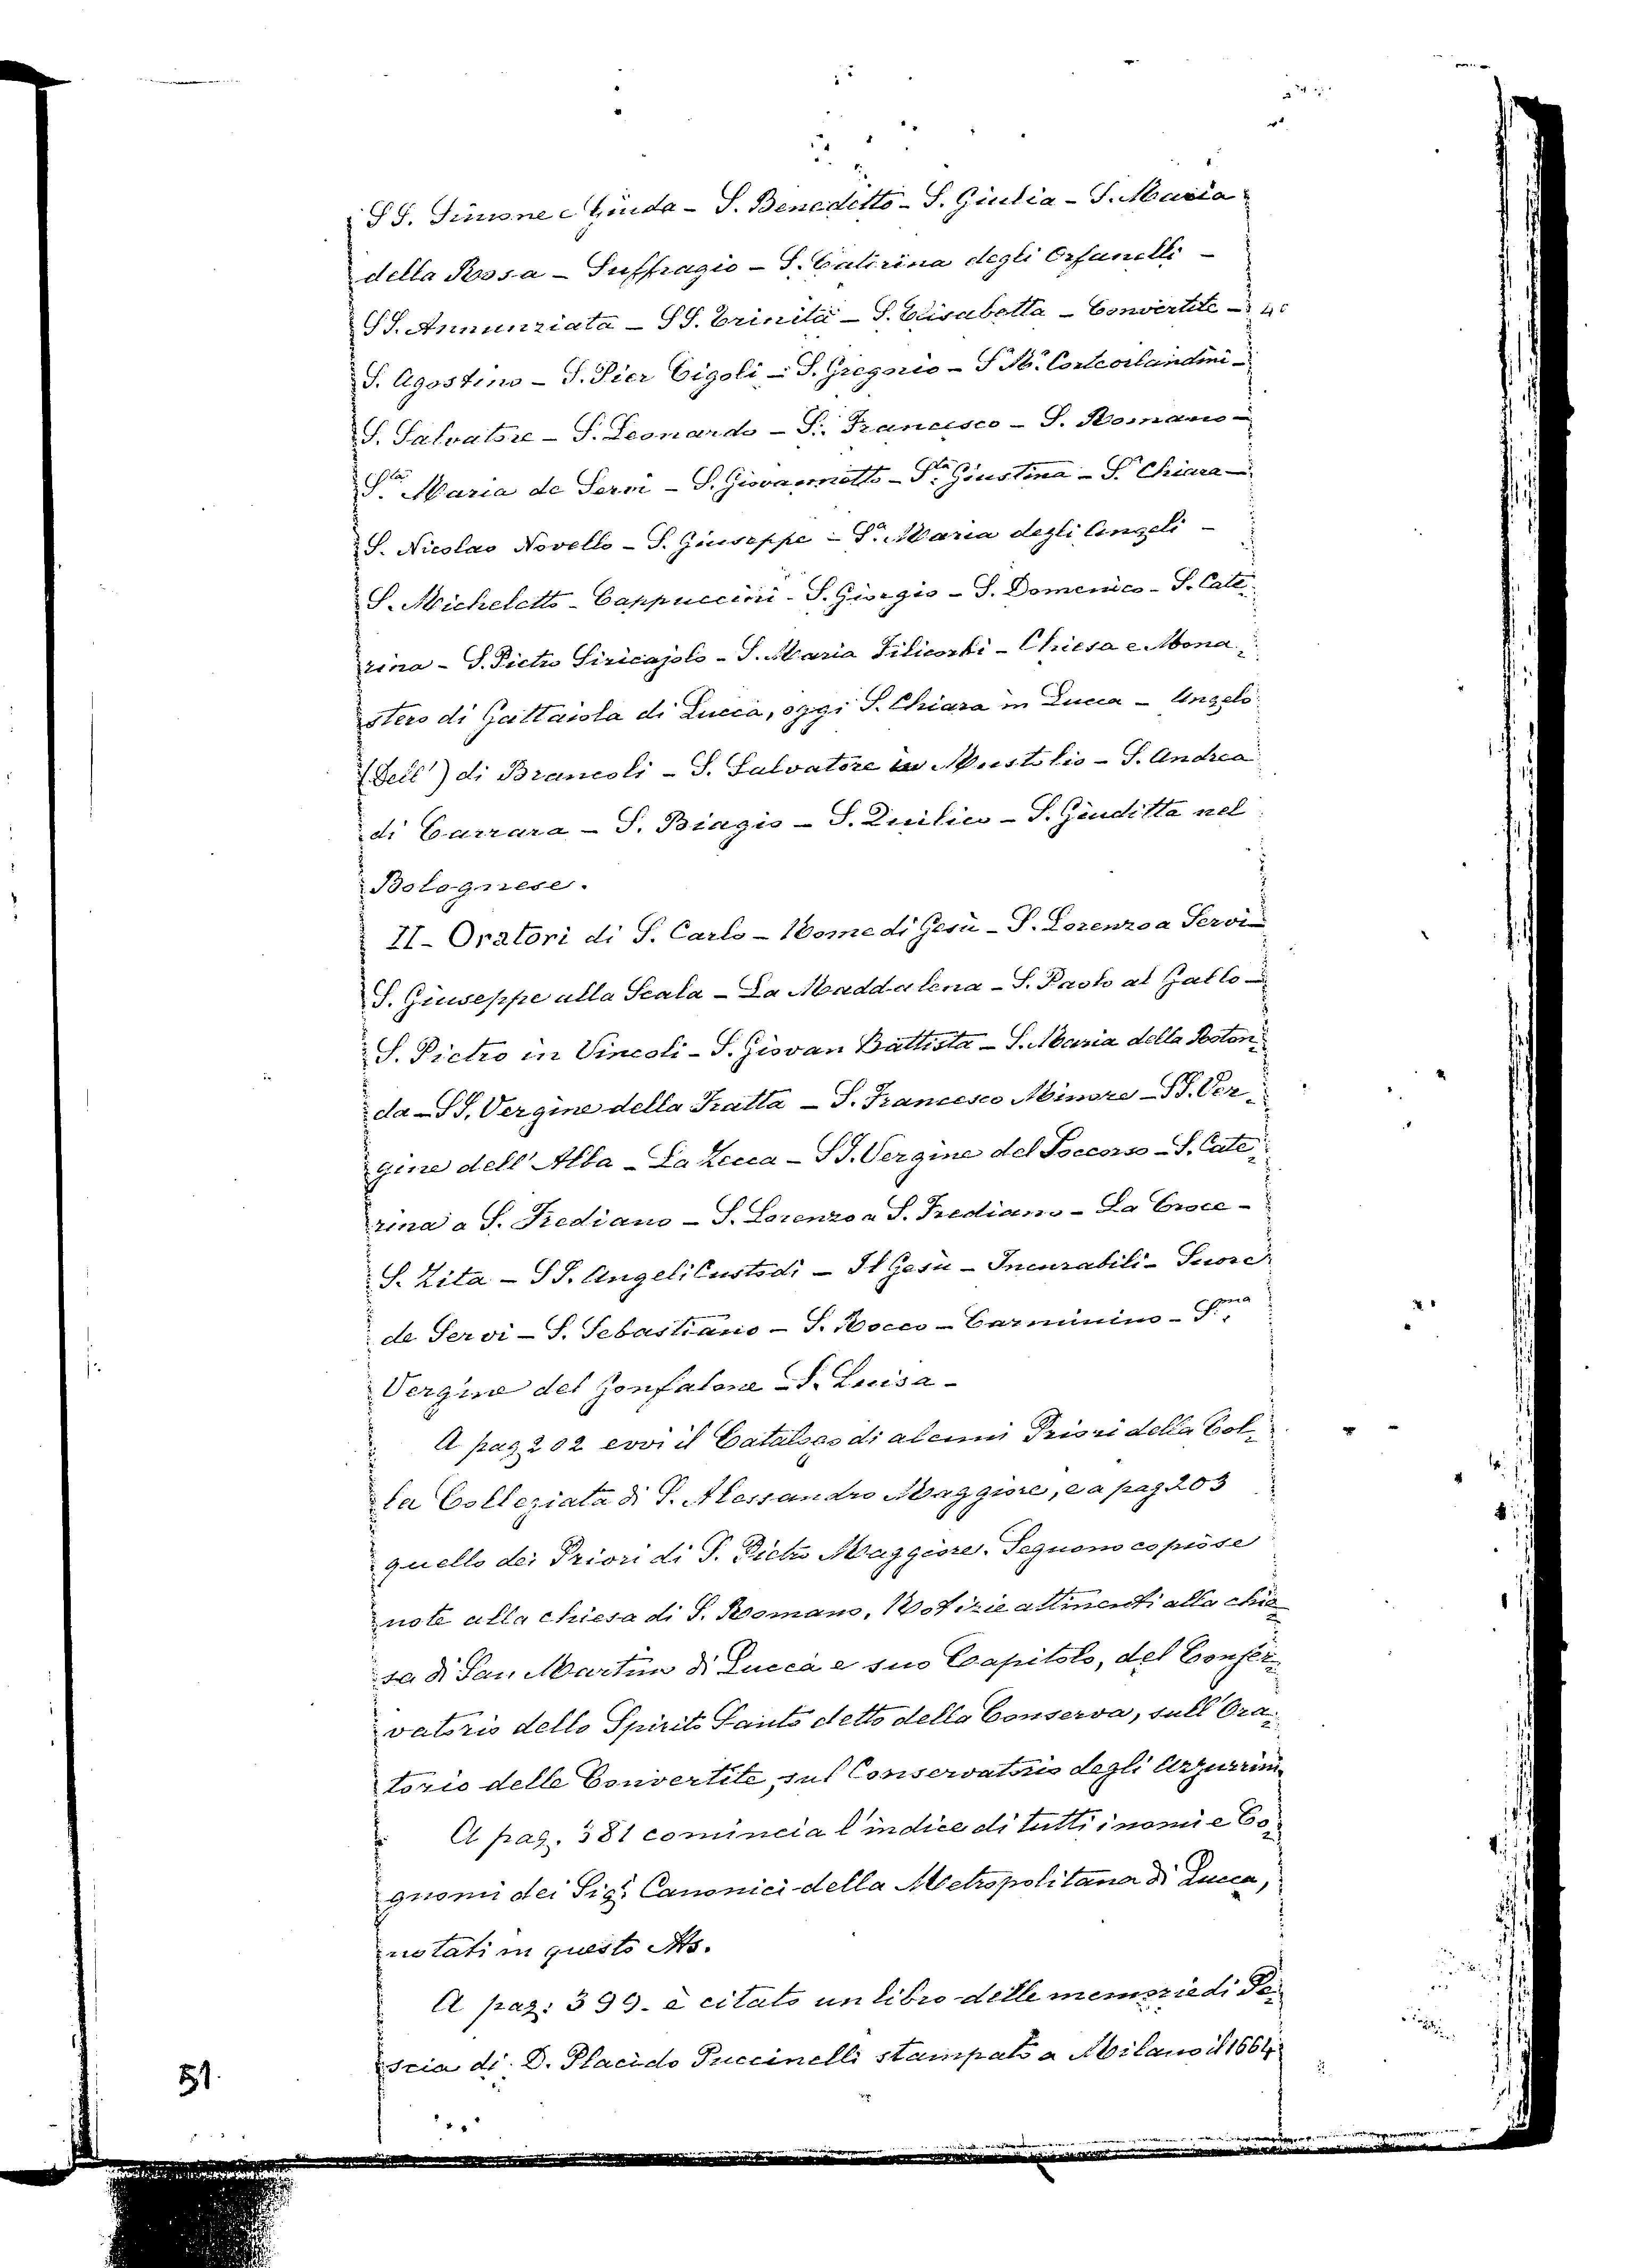 SS. Simone e Giuda – S. Benedetto – S. Giulia – S. Maria
della Rosa – Suffragio – S. Catirina degli Orfanelli –
SS. Annunziata – SS. Trinità – S. Elisabetta – Convertite –
S. Agostino – S. Pier Cigoli – S. Gregorio – S. Mª. Corteorlandini –
S. Salvatore – S. Leonardo – S. Francesco – S. Romano –
S.ta Maria de Servi – S. Giovannetto – S.ta Giustina – S.a Chiara –
S. Nicolao Novello – S. Giuseppe – S.a Maria degli Angeli –
S. Micheletto – Cappuccini – S. Giorgio – S. Domenico – S. Cate=
rina – S. Pietro Siricajolo – S. Maria Filicorbi – Chiesa e Mona=
stero di Gattaiola di Lucca, oggi S. Chiara in Lucca – Angelo
(dell') di Brancoli – S. Salvatore in Mustolio – S. Andrea
di Carrara – S. Biagio – S. Quilico – S. Giuditta nel
Bolognese.
II – Oratori di S. Carlo – Nome di Gesù – S. Lorenzo a Servi –
S. Giuseppe alla Scala – La Maddalena – S. Paolo al Gallo –
S. Pietro in Vincoli – S. Giovan Battista – S. Maria della Roton=
da – SS. Vergine della Fratta – S. Francesco Minore – SS. Ver=
gine dell'Alba – La Zecca – SS. Vergine del Soccorso – S. Cate=
rina a S. Frediano – S. Lorenzo a S. Frediano – La Croce –
S. Zita – SS. Angeli Custodi – Il Gesù – Incurabili – Suore
de Servi – S. Sebastiano – S. Rocco – Carminino – S.ma
Vergine del Gonfalone – S. Luisa –
A pag 202 evvi il Catalogo di alcuni Priori della Col=
la Collegiata di S. Alessandro Maggiore, e a pag 203
quello dei Priori di S. Pietro Maggiore. Seguono copiose
note alla chiesa di S. Romano, Notizie attinenti alla chie=
sa di San Martino di Lucca e suo Capitolo, del Conser=
vatorio dello Spirito Santo detto della Conserva, sull'Ora=
torio delle Convertite, sul Conservatorio degli Azzurrini.
A pag. 381 comincia l'indice di tutti i nomi e Co=
gnomi dei Sig.i Canonici della Metropolitana di Lucca,
notati in questo Ms.
A pag: 399. è citato un libro delle memorie di Pe=
scia di D. Placido Puccinelli stampato a Milano il 1664
51.